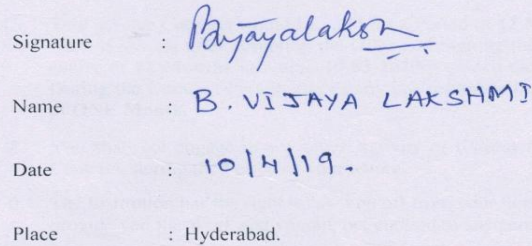 Signature : Bvijayalaksh
Name : B. VIJAYA LAKSHMI
Date : 10/4/19.
Place : Hyderabad.